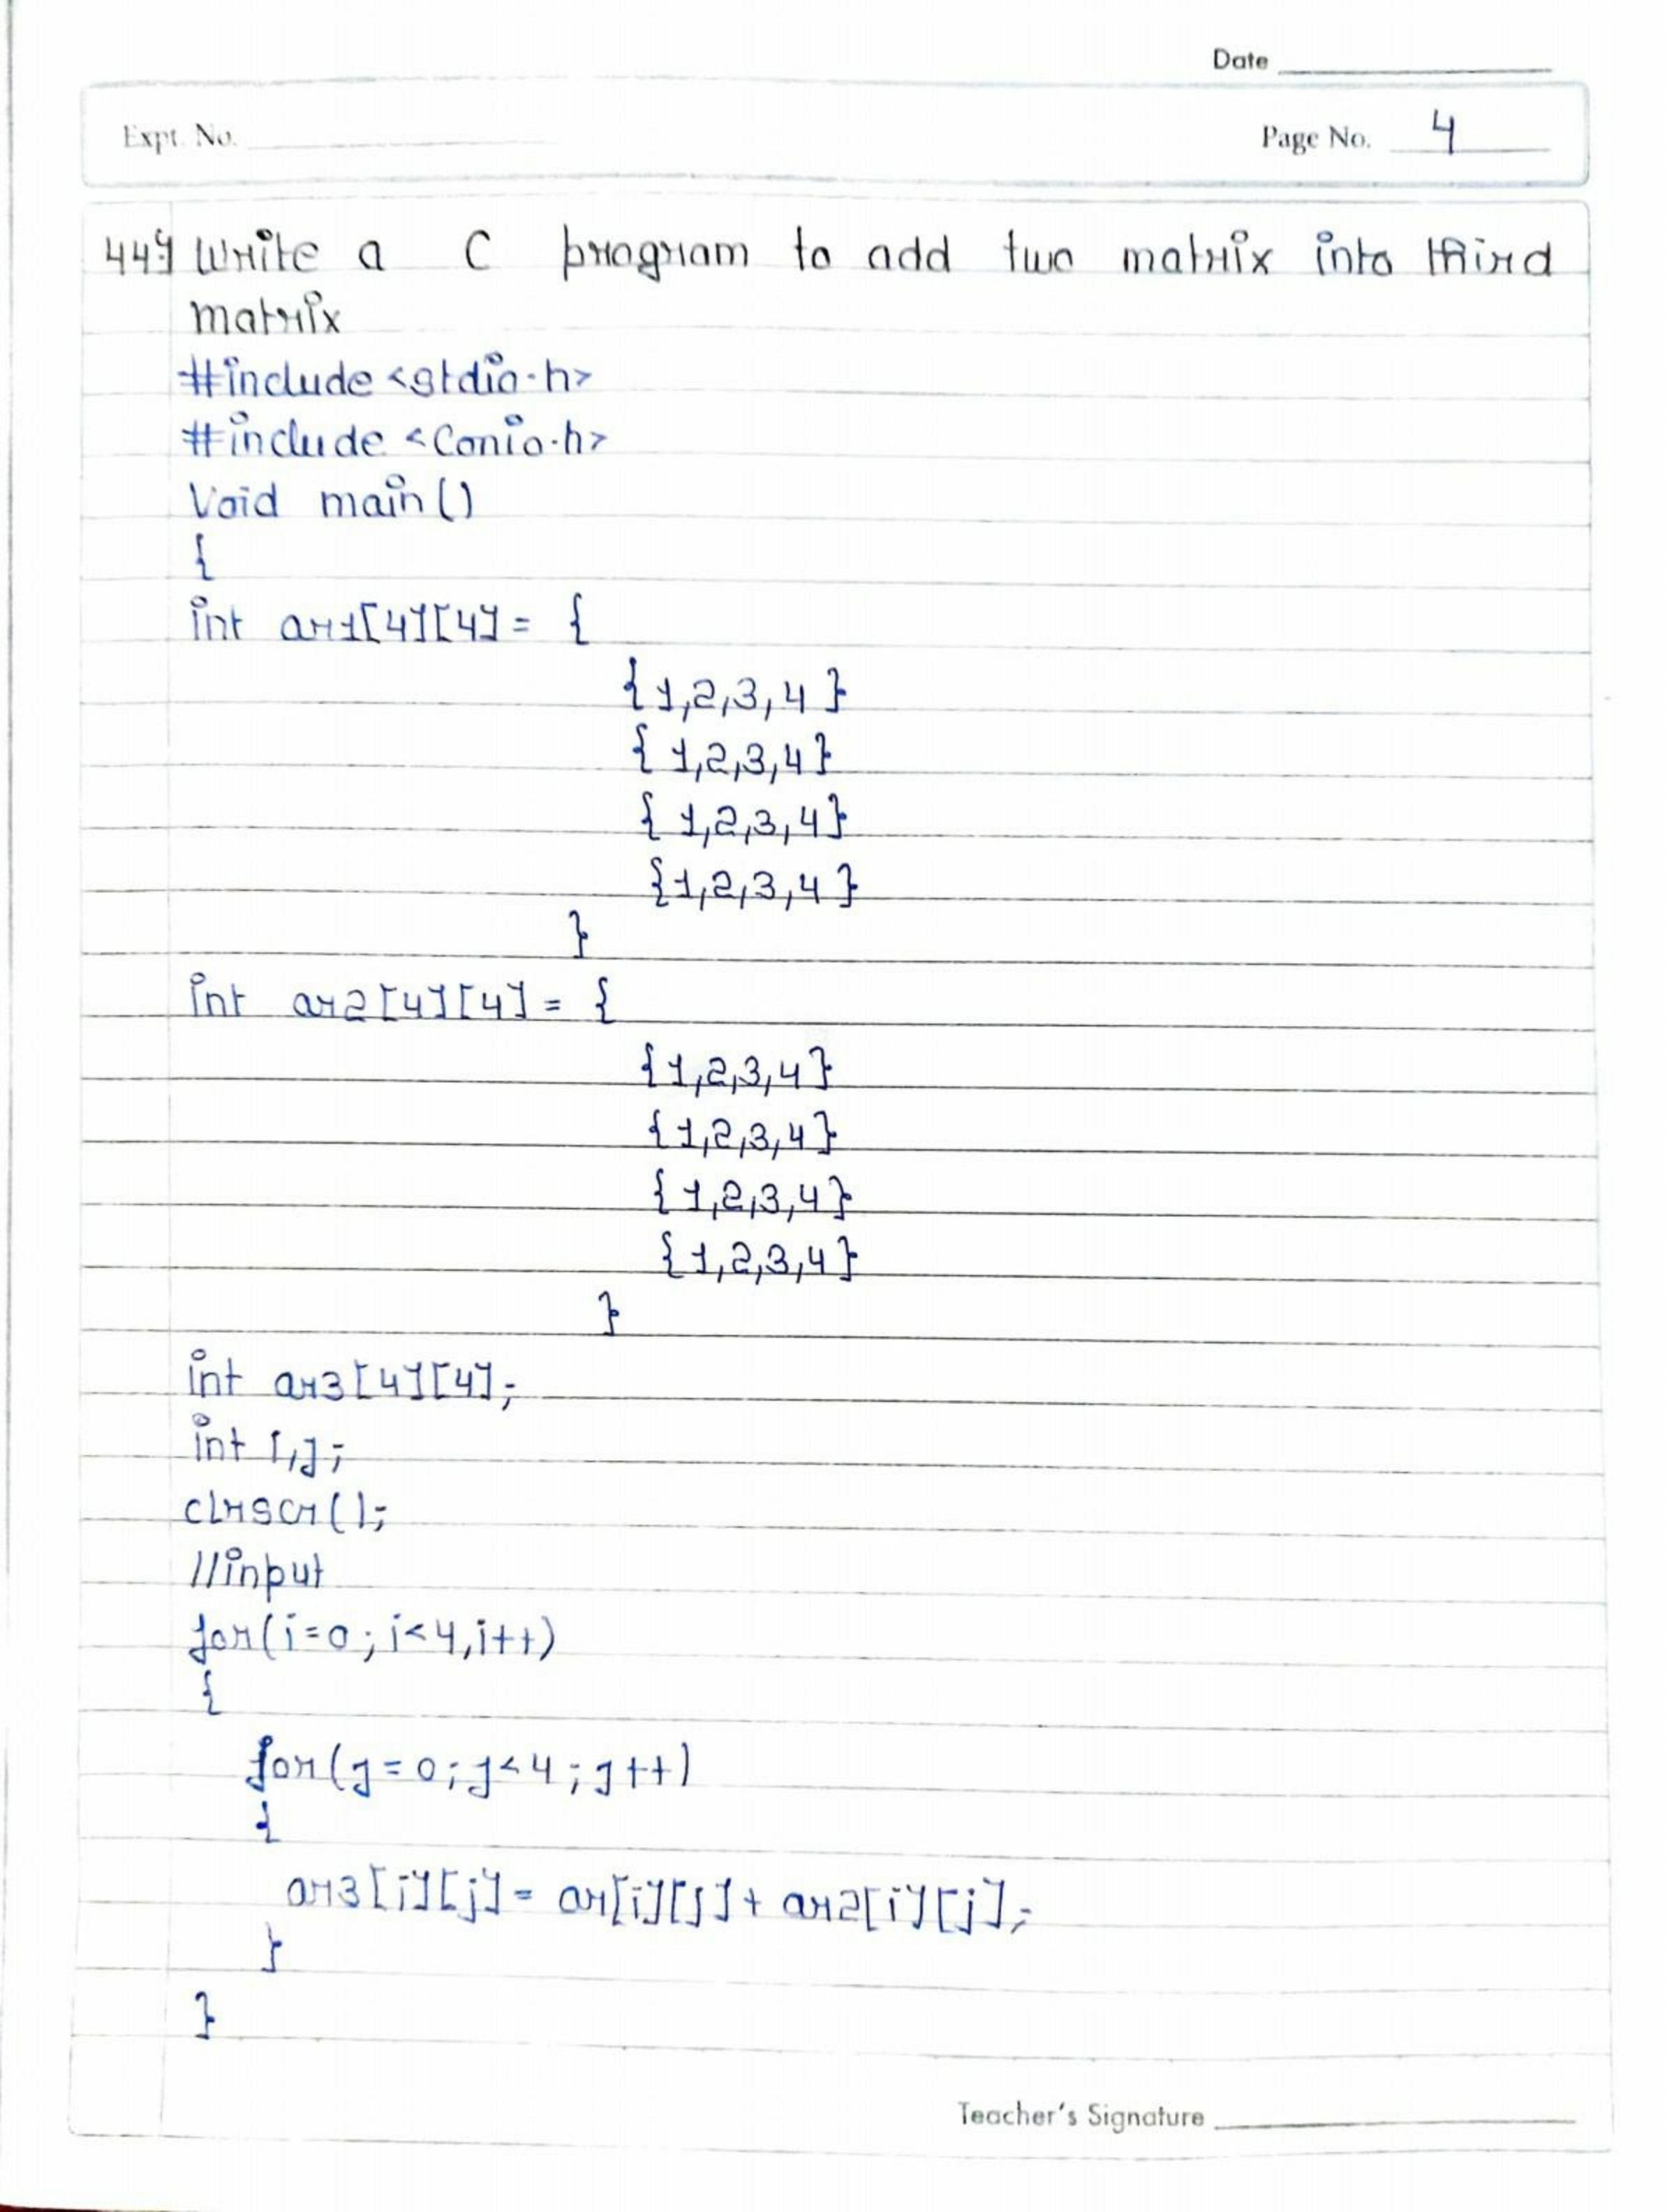 Date
Expt. No.
Page No. 4
44) Write a C program to add two matrix into third
matrix
#include <stdio.h>
#include <Conio.h>
Void main()
{
int ar1[4][4] = {
{1,2,3,4}
{1,2,3,4}
{1,2,3,4}
{1,2,3,4}
}
int ar2[4][4] = {
{1,2,3,4}
{1,2,3,4}
{1,2,3,4}
{1,2,3,4}
}
int ar3[4][4];
int i,j;
clrscr();
//input
for(i=0; i<4,i++)
{
for(j=0; j<4; j++)
{
ar3[i][j] = ar[i][j] + ar2[i][j];
}
}
Teacher's Signature